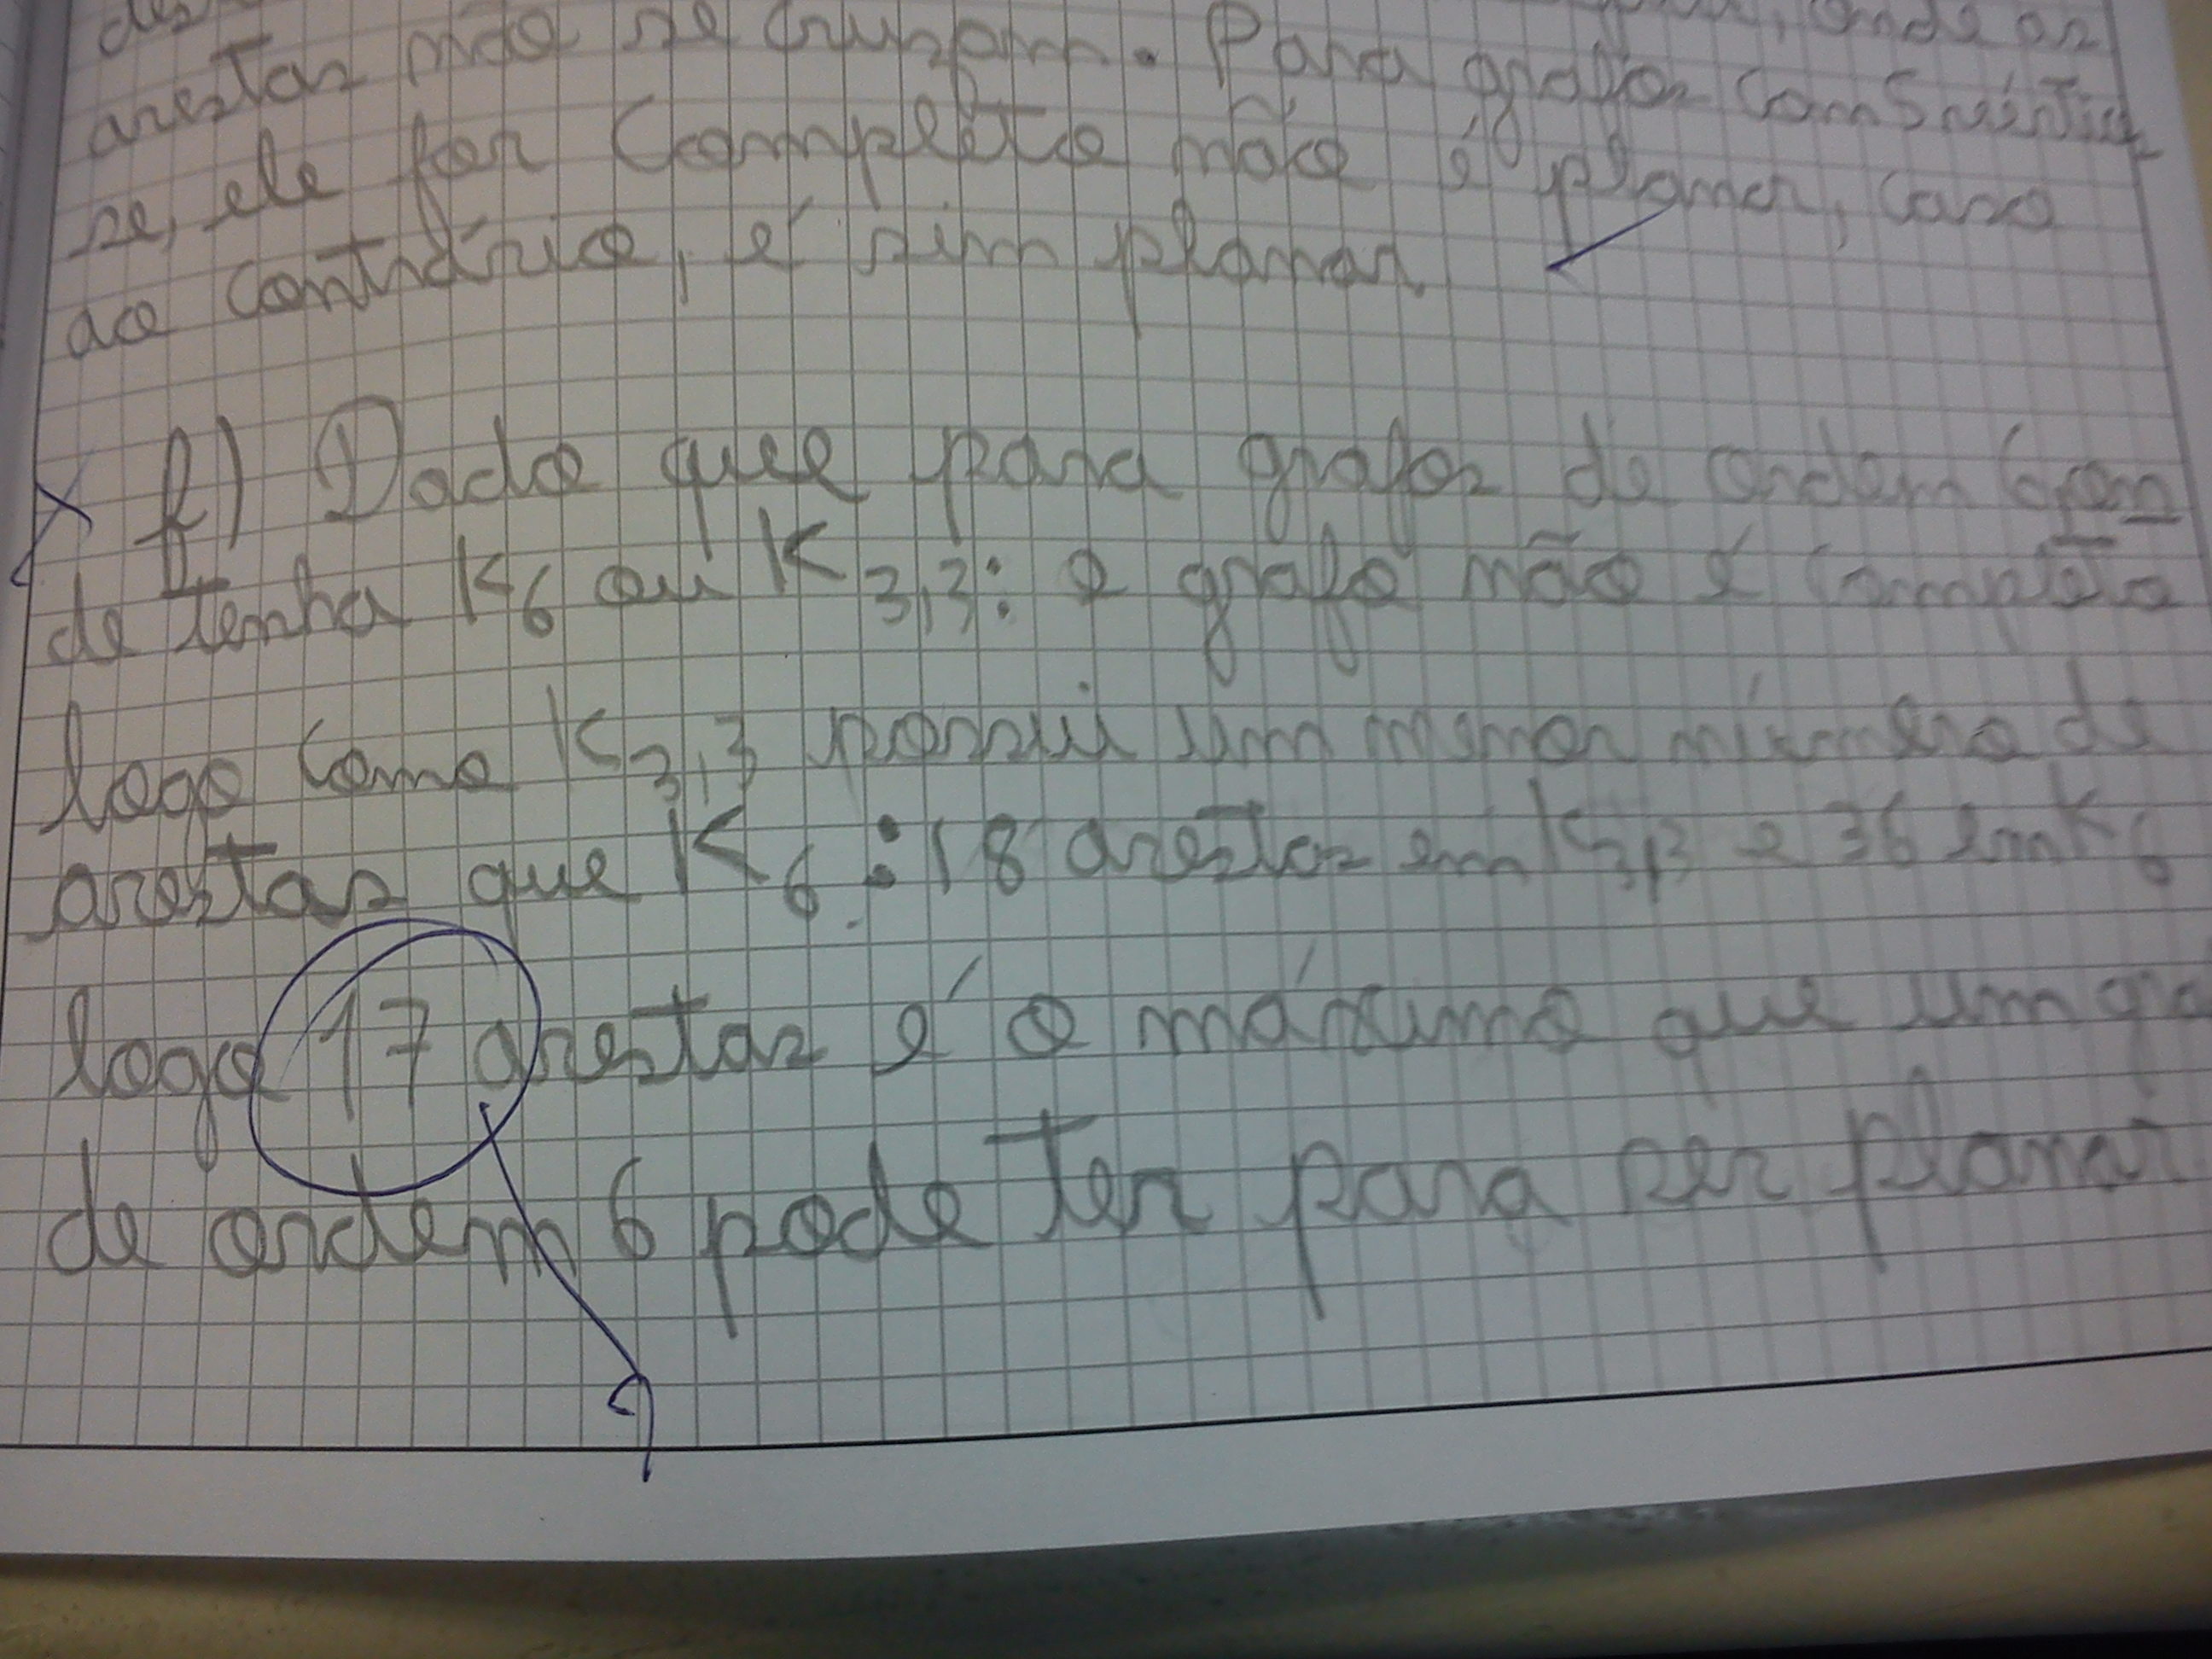 arestas não se cruzam. Para grafos com 5 vértic
se, ele for completo não é planar, caso
ao contrário, é sim planar
b) ① Dado que para grafos de ordem 6 con
de tenha K6 ou K3,3: o grafo não é completo
logo como K3,3 possui um menor número de
arestas que K6: 18 arestas em K3,3 e 36 em K6
logo 17 arestas é o máximo que um gra
de ordem 6 pode ter para ser planar